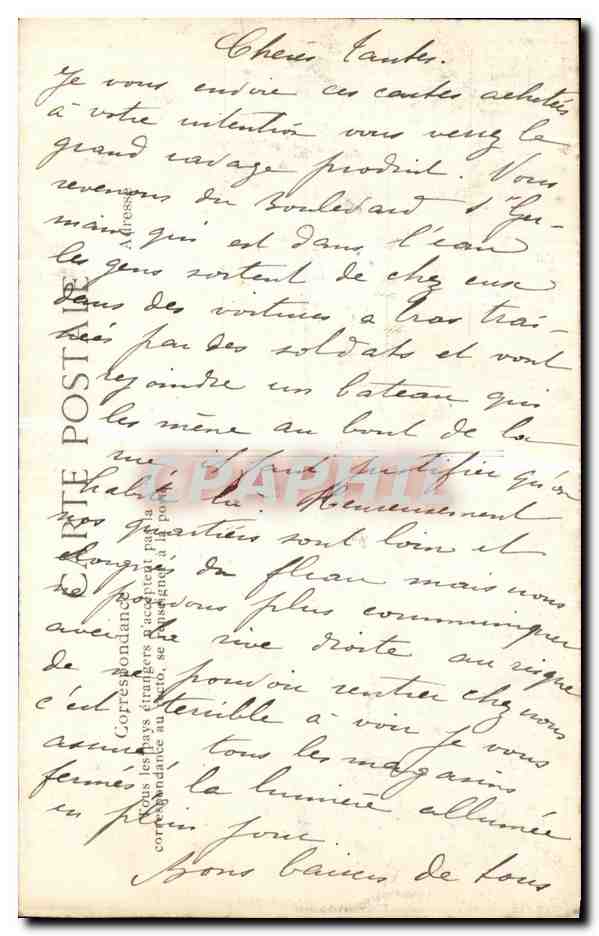 Cheres Tantes.
Je vous envoie ces cartes achetées
à votre intention vous verrez le
grand ravage produit. Nous
revenons du Boulevard St Ger-
main qui est dans l'eau
les gens sortent de chez eux
dans des voitures a bras traî-
nées par des soldats et vont
rejoindre un bateau qui
les mène au bout de la
rue il faut justifier qu'on
habite là. Heureusement
nos quartiers sont loin et
éloignés du fleau mais nous
ne pouvons plus communiquer
avec la rive droite au risque
de ne pouvoir rentrer chez nous
c'est terrible à voir je vous
assure tous les magasins
fermés la lumière allumée
en plein jour.
Bons baisers de tous
CARTE POSTALE
Correspondance
Adresse
Tous les pays étrangers n'acceptent pas la
correspondance au recto, se renseigner à la poste
CPAPHIL